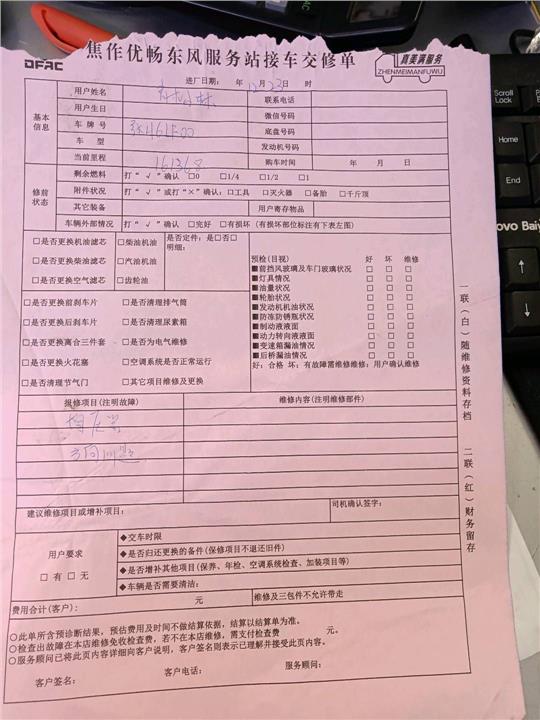 焦作优畅东风服务站接车交修单
DFAC
真美满服务
ZHENMEIMANFUWU
进厂日期: 年 12 月 23 日 时
基本信息
用户姓名 联系电话
用户生日 微信号码
车牌号 底盘号码
车型 发动机号码
当前里程 161368 购车时间 年 月 日
修前状态
剩余燃料 打“√”确认 □0 □1/4 □1/2 □1
附件状况 打“√”或打“×”确认: □工具 □灭火器 □备胎 □千斤顶
其它装备 用户寄存物品
车辆外部情况 打“√”确认 □完好 □有损坏 (有损坏部位标注有下表左图)
□是否更换机油滤芯 □柴油机油 是否定件: 是□否□
明细:
□是否更换柴油滤芯 □汽油机油
□是否更换空气滤芯 □齿轮油
□是否更换前刹车片 □是否清理排气筒
□是否更换后刹车片 □是否清理尿素箱
□是否更换离合三件套 □是否为电气维修
□是否更换火花塞 □空调系统是否正常运行
□是否清理节气门 □其它项目维修及更换
预检(目视) 好 坏 维修
■前挡风玻璃及车门玻璃状况 □ □ □
■灯具情况 □ □ □
■油量状况 □ □ □
■轮胎状况 □ □ □
■发动机机油状况 □ □ □
■防冻防锈瓶状况 □ □ □
■制动液液面 □ □ □
■动力转向液液面 □ □ □
■变速箱漏油情况 □ □ □
■后桥漏油情况 □ □ □
好: 合格 坏: 有故障需维修维修: 用户确认维修
报修项目(注明故障) 维修内容(注明维修部件)
方向问题
建议维修项目或增补项目: 司机确认签字:
用户要求
□有 □无
◆交车时限
◆是否归还更换的备件(保修项目不退还旧件)
◆是否增补其他项目(保养、年检、空调系统检查、加装项目等)
◆车辆是否需要清洁:
费用合计(客户): 元 维修及三包件不允许带走
○此单所含预诊断结果, 预估费用及时间不做结算依据, 结算以结算单为准。
○检查出故障在本店维修免收检查费, 若不在本店维修, 需支付检查费 元。
○服务顾问已将此页内容详细向客户说明, 客户签名则表示已理解并接受此页内容。
客户签名: 客户电话: 服务顾问:
一联(白)随维修资料存档 二联(红)财务留存
Scroll Lock
Pause
Home
End
ovo Baiy